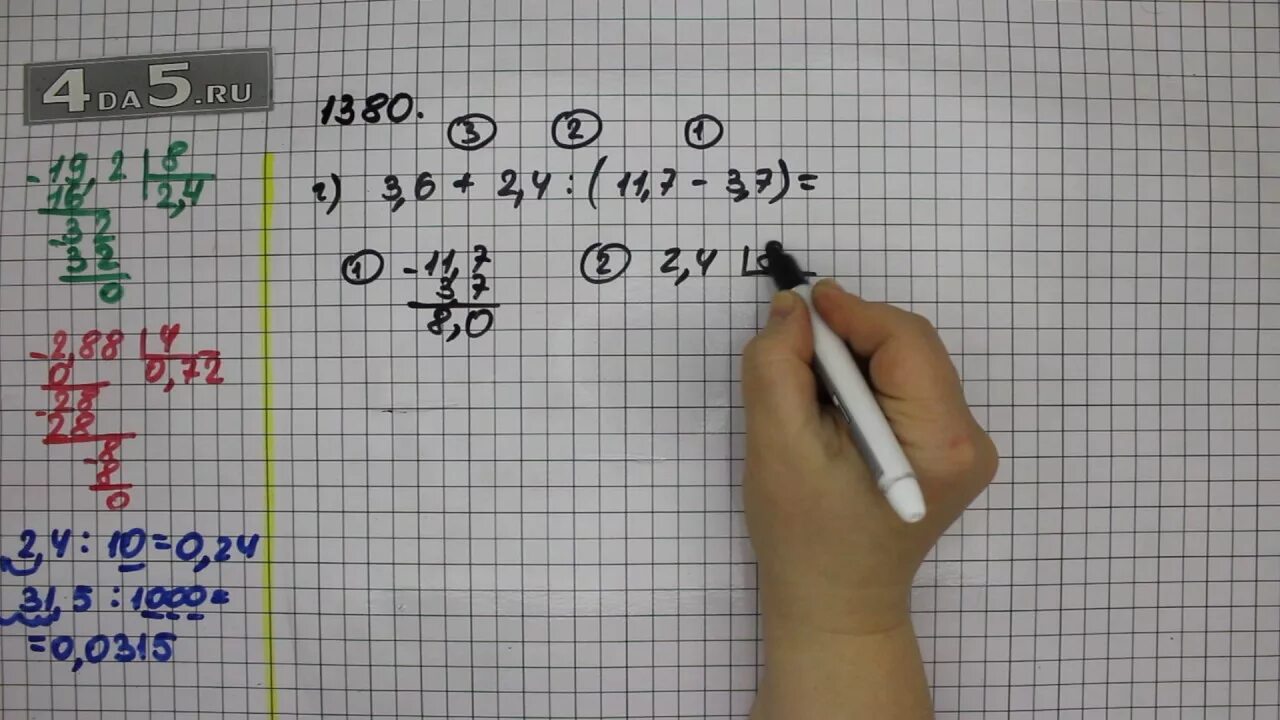 4DA5.RU
1380.
3 2 1
г) 3,6 + 2,4 : ( 11,7 - 3,7 ) =
1 - 11,7
3,7
8,0
2 2,4
- 19,2 8
16 2,4
- 32
32
0
- 2,88 4
0 0,72
- 28
28
- 8
8
0
2,4 : 10 = 0,24
31,5 : 1000 =
= 0,0315